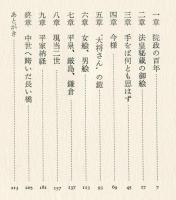 一章 院政の百年 7
二章 法皇秘蔵の御絵 27
三章 手をば何とも思はず 45
四章 今様 69
五章 "大将さん"の鎧 93
六章 女絵、男絵 113
七章 平泉、厳島、鎌倉 137
八章 現当二世 157
九章 平家納経 181
終章 中世へ跨いだ長い橋 205
あとがき 223